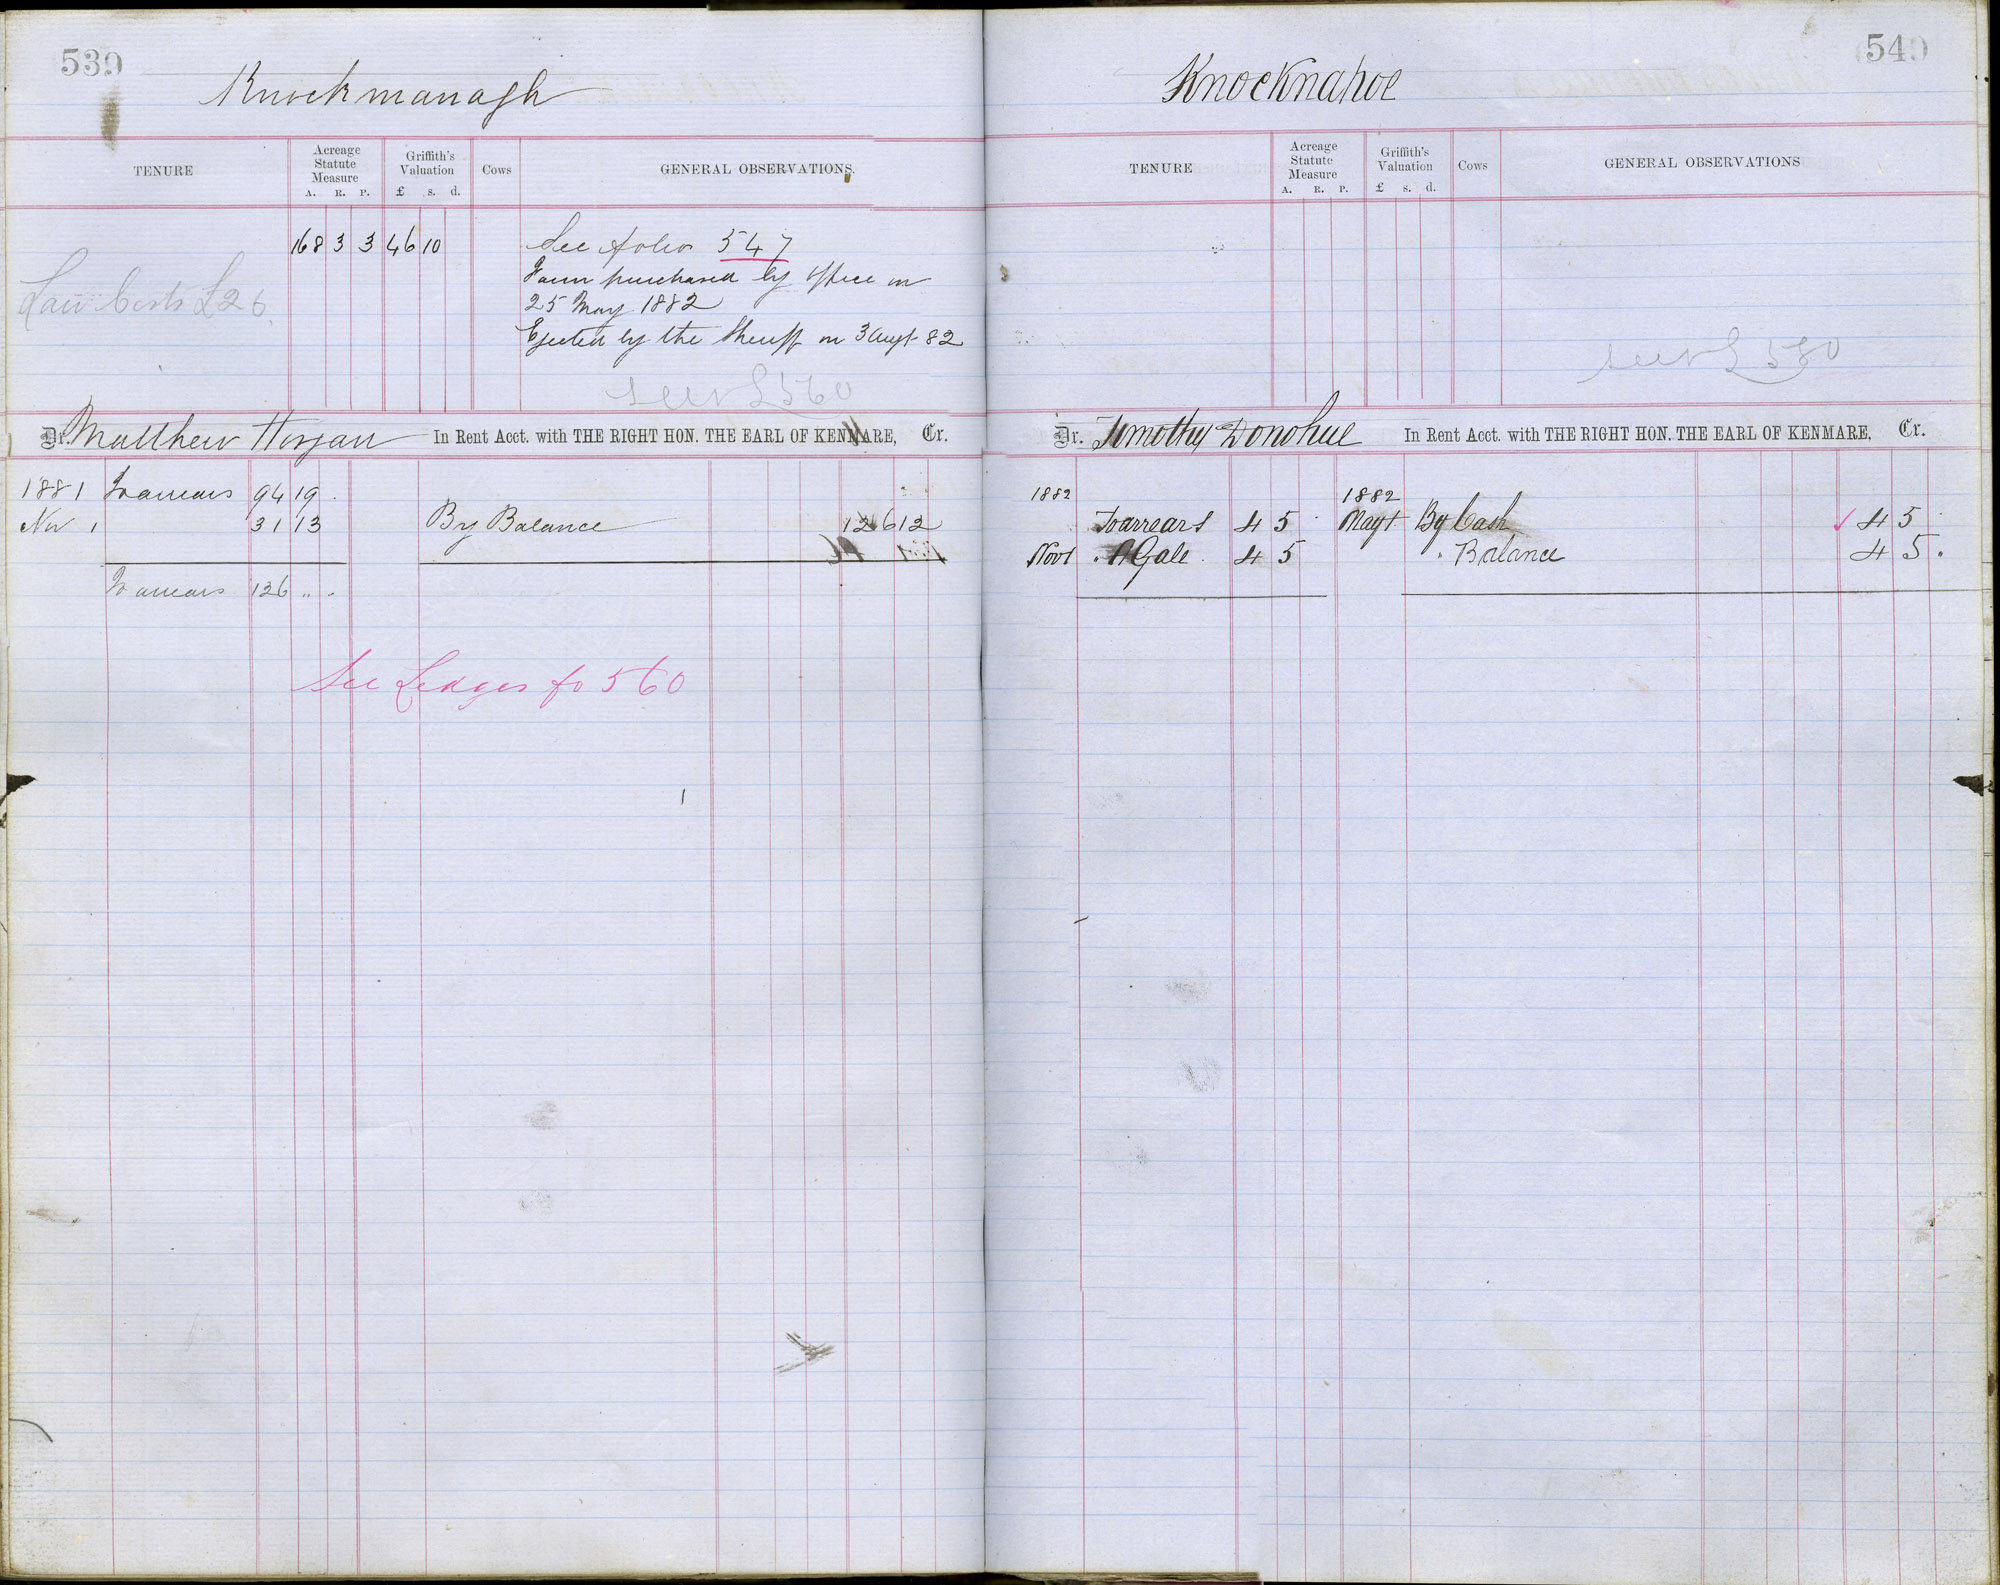 539
Knockmanagh
TENURE
Acreage Statute Measure
A. R. P.
Griffith's Valuation
£ s. d.
Cows
GENERAL OBSERVATIONS.
168 3 3 46 10
See folio 547
Farm purchased by office on
25 May 1882
Ejected by the Sheriff on 3 Augt 82
Law Costs £26
560
Dr. Matthew Horgan In Rent Acct. with THE RIGHT HON. THE EARL OF KENMARE, Cr.
1881 To arrears 94 19 .
Nov 1 31 13 By Balance 126 12
To arrears 126 .. .
See Ledger fo 560
540
Knocknahoe
TENURE
Acreage Statute Measure
A. R. P.
Griffith's Valuation
£ s. d.
Cows
GENERAL OBSERVATIONS
580
Dr. Timothy Donohue In Rent Acct. with THE RIGHT HON. THE EARL OF KENMARE, Cr.
1882 1882
To arrears 4 5 May 1 By Cash 4 5
Nov 1 . Gale 4 5 . Balance 4 5 .